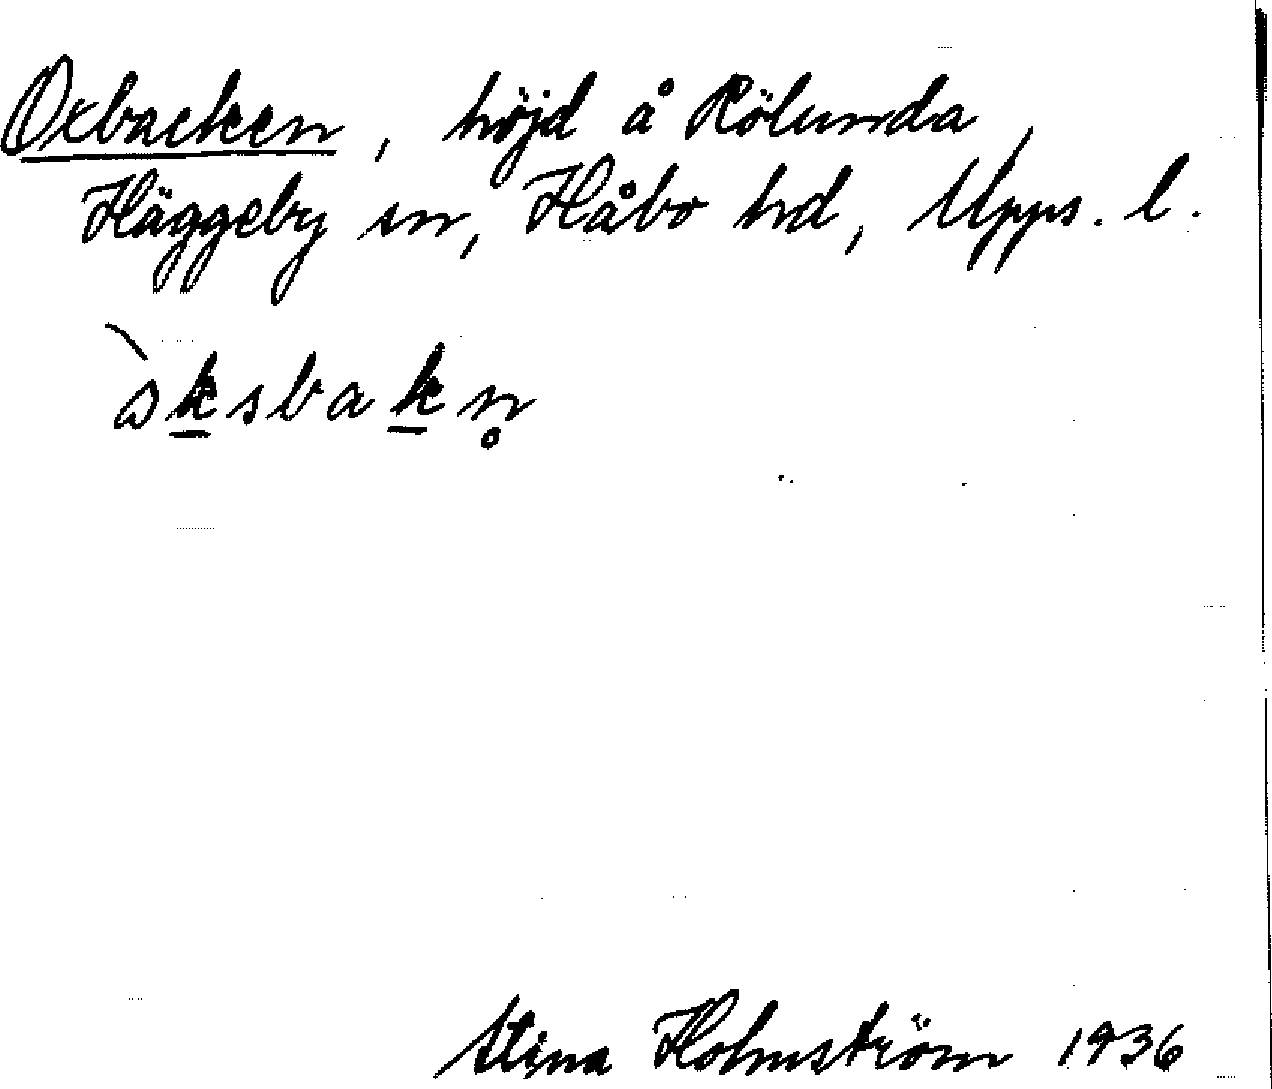 Oxbacken, höjd å Rölunda,
Häggeby sn, Håbo hd, Upps. l.
òksbakn̥
Stina Holmström 1936